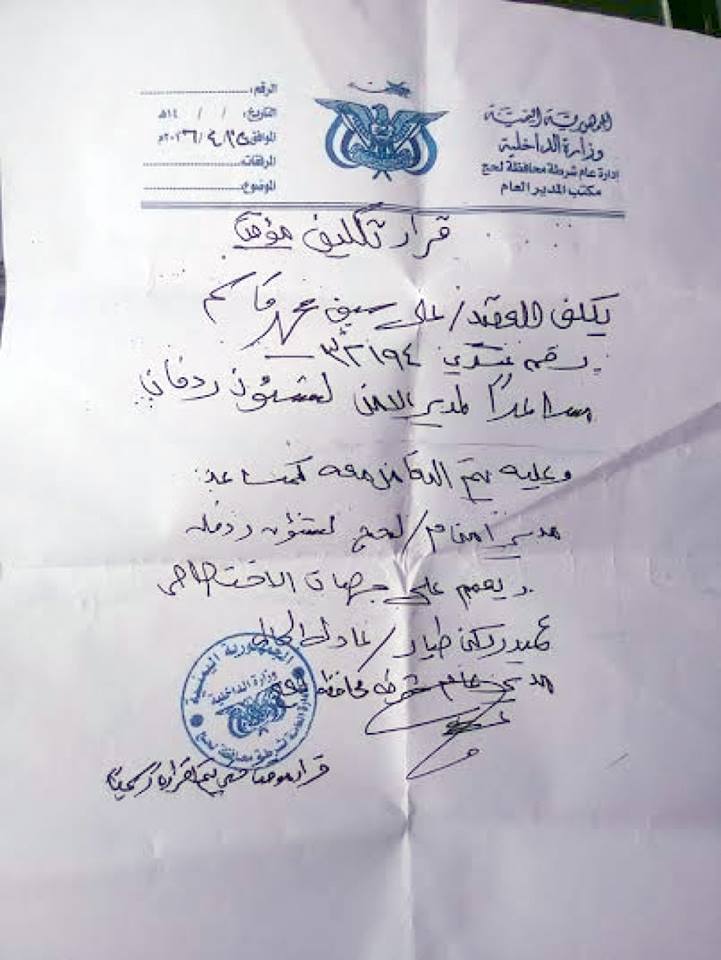 الجمهورية اليمنية
وزارة الداخلية
إدارة عام شرطة محافظة لحج
مكتب المدير العام
الرقم:
التاريخ: / / ١٤هـ
الموافق
المرفقات:
الموضوع:
قرار تكليف مؤقت
يكلف العقيد/ علي سيف محمد قاسم
رقم عسكري ٣٢١٩٤
مساعداً لمدير الامن لشئون ردفان
وعليه يتم التعامل معه كمساعد
مدير امن م/ لحج لشئون ردفان
ويعمم على جهات الاختصاص
عميد ركن طيار/ عادل الحالمي
مدير عام شرطة محافظة لحج
الجمهورية اليمنية
وزارة الداخلية
قرار مؤقت